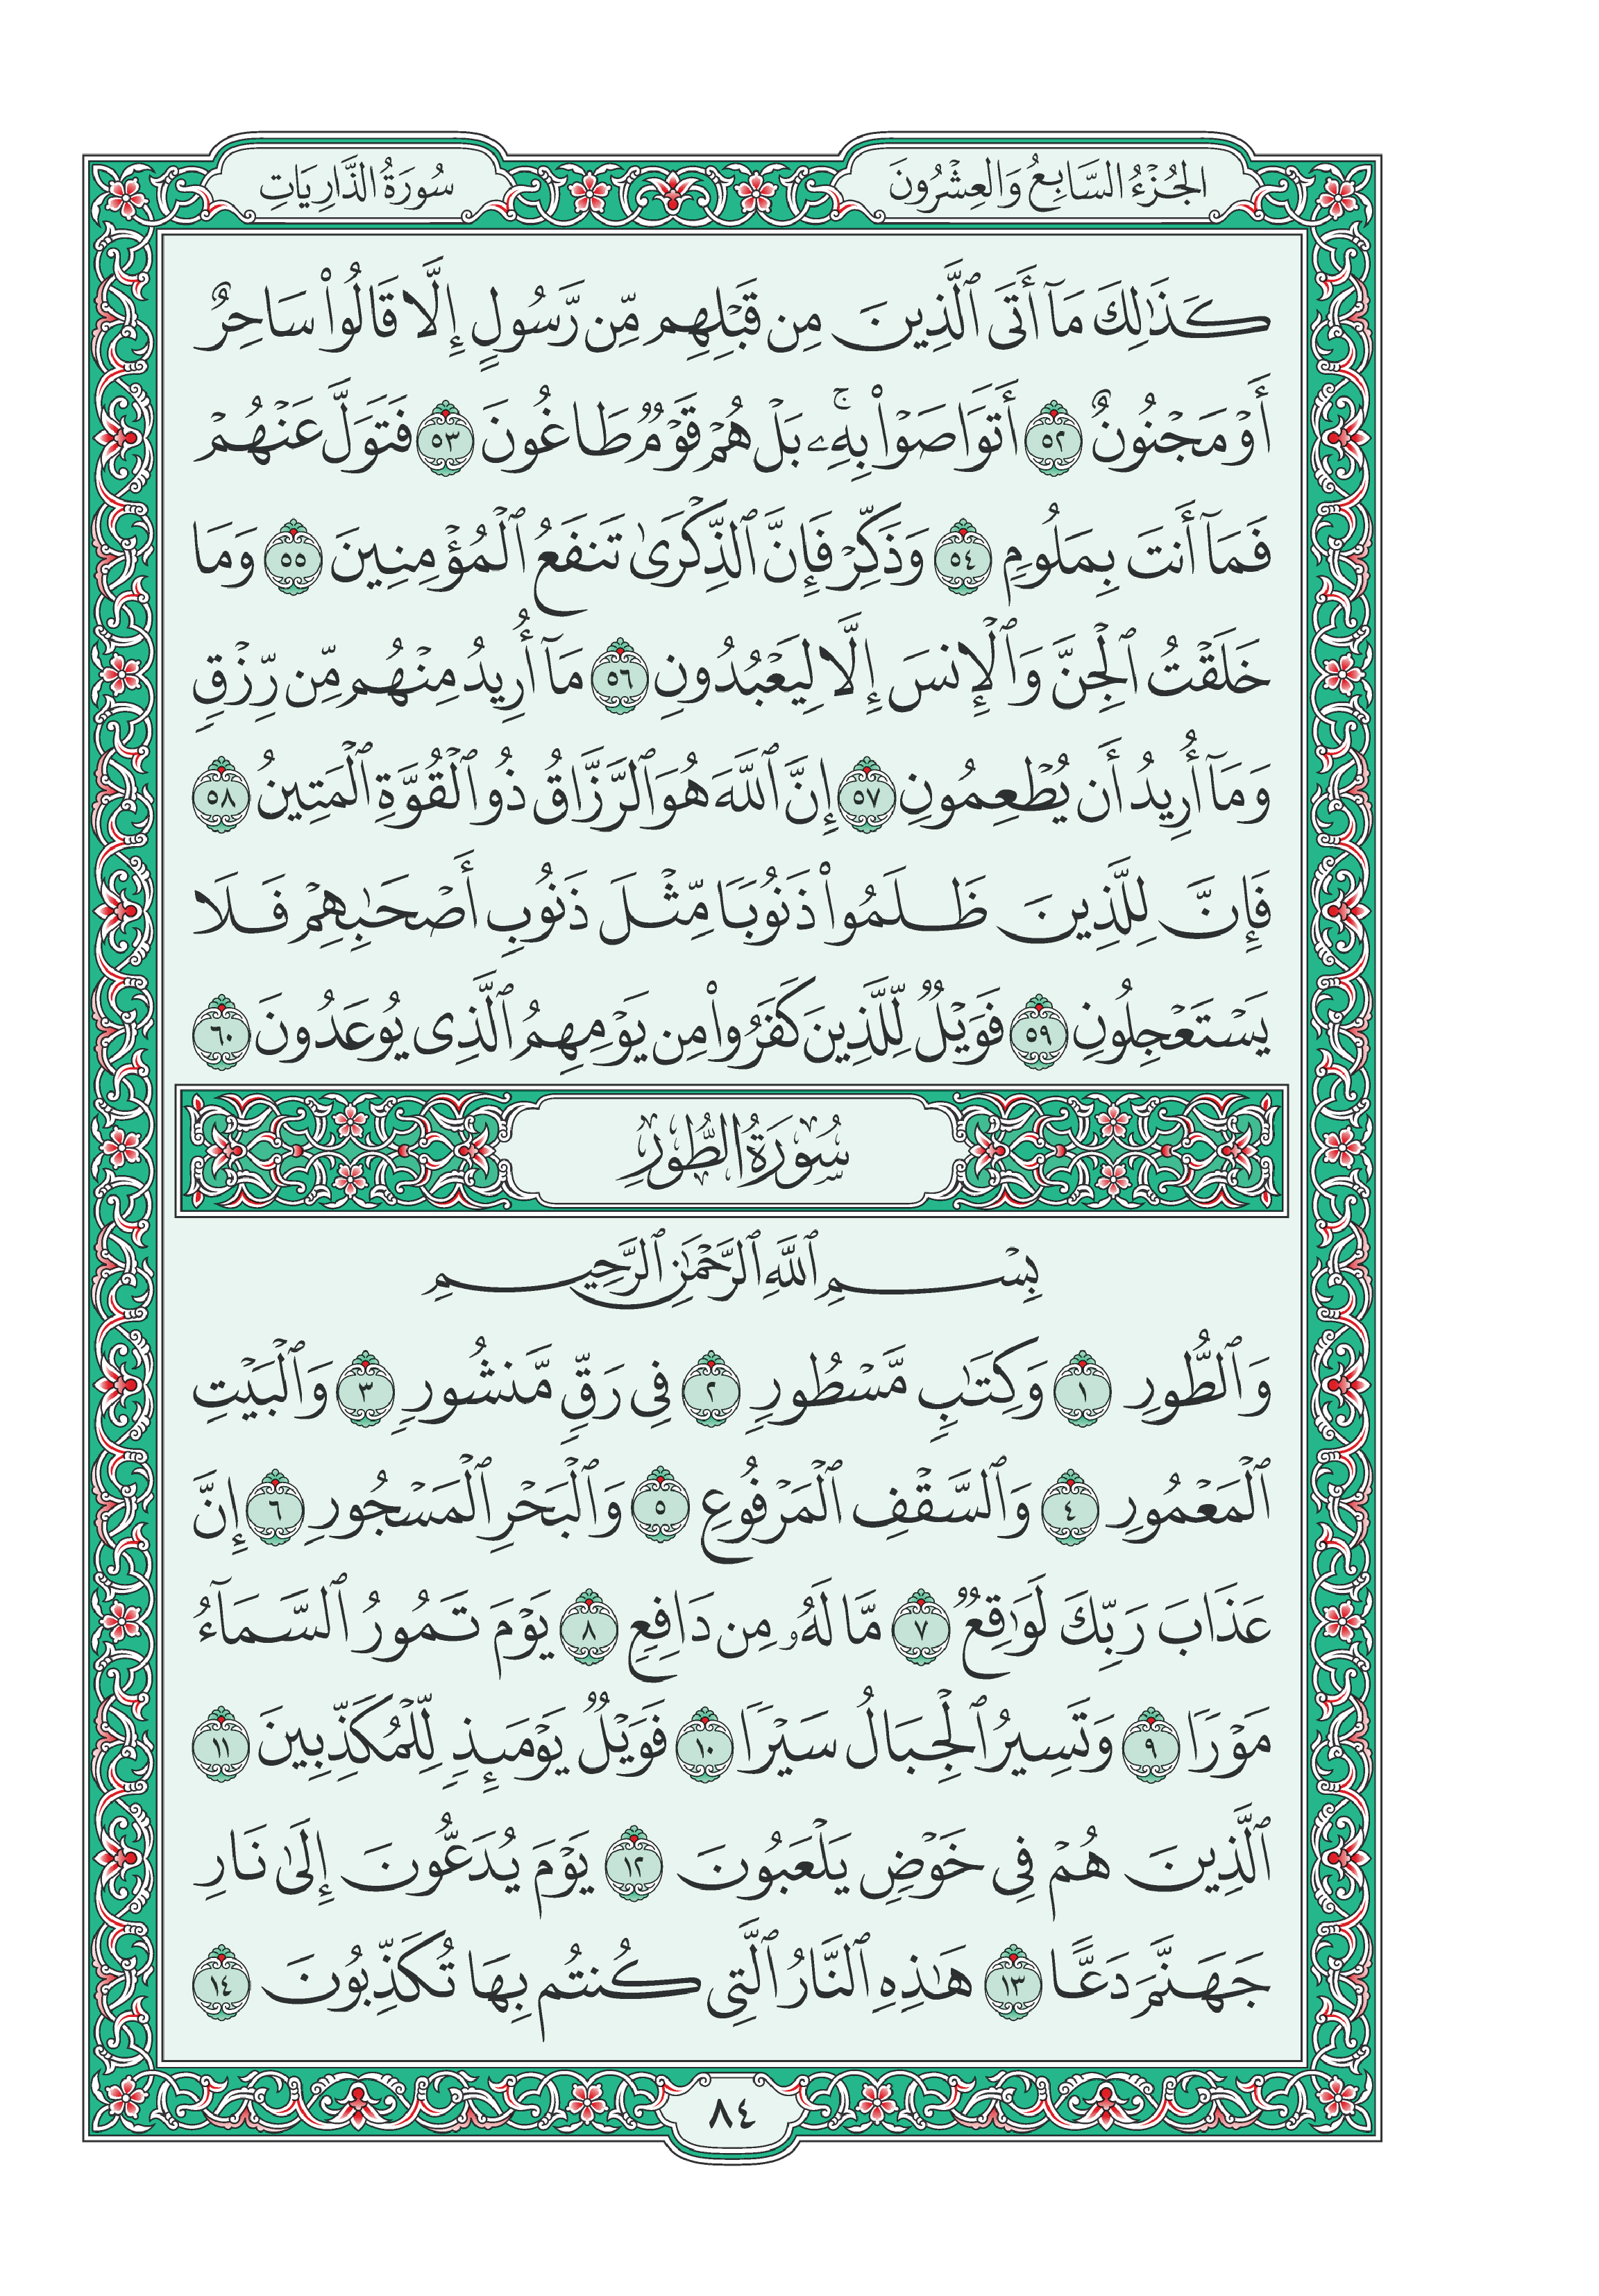 الجُزْءُ السَّابِعُ وَالعِشْرُونَ
سُورَةُ الذَّارِيَاتِ
كَذَٰلِكَ مَآ أَتَى ٱلَّذِينَ مِن قَبْلِهِم مِّن رَّسُولٍ إِلَّا قَالُوا۟ سَاحِرٌ
أَوْ مَجْنُونٌ ٥٢ أَتَوَاصَوْا۟ بِهِۦۚ بَلْ هُمْ قَوْمٌ طَاغُونَ ٥٣ فَتَوَلَّ عَنْهُمْ
فَمَآ أَنتَ بِمَلُومٍ ٥٤ وَذَكِّرْ فَإِنَّ ٱلذِّكْرَىٰ تَنفَعُ ٱلْمُؤْمِنِينَ ٥٥ وَمَا
خَلَقْتُ ٱلْجِنَّ وَٱلْإِنسَ إِلَّا لِيَعْبُدُونِ ٥٦ مَآ أُرِيدُ مِنْهُم مِّن رِّزْقٍ
وَمَآ أُرِيدُ أَن يُطْعِمُونِ ٥٧ إِنَّ ٱللَّهَ هُوَ ٱلرَّزَّاقُ ذُو ٱلْقُوَّةِ ٱلْمَتِينُ ٥٨
فَإِنَّ لِلَّذِينَ ظَلَمُوا۟ ذَنُوبًا مِّثْلَ ذَنُوبِ أَصْحَٰبِهِمْ فَلَا
يَسْتَعْجِلُونِ ٥٩ فَوَيْلٌ لِّلَّذِينَ كَفَرُوا۟ مِن يَوْمِهِمُ ٱلَّذِى يُوعَدُونَ ٦٠
سُورَةُ الطُّورِ
بِسْمِ ٱللَّهِ ٱلرَّحْمَٰنِ ٱلرَّحِيمِ
وَٱلطُّورِ ١ وَكِتَٰبٍ مَّسْطُورٍ ٢ فِى رَقٍّ مَّنشُورٍ ٣ وَٱلْبَيْتِ
ٱلْمَعْمُورِ ٤ وَٱلسَّقْفِ ٱلْمَرْفُوعِ ٥ وَٱلْبَحْرِ ٱلْمَسْجُورِ ٦ إِنَّ
عَذَابَ رَبِّكَ لَوَٰقِعٌ ٧ مَّا لَهُۥ مِن دَافِعٍ ٨ يَوْمَ تَمُورُ ٱلسَّمَآءُ
مَوْرًا ٩ وَتَسِيرُ ٱلْجِبَالُ سَيْرًا ١٠ فَوَيْلٌ يَوْمَئِذٍ لِّلْمُكَذِّبِينَ ١١
ٱلَّذِينَ هُمْ فِى خَوْضٍ يَلْعَبُونَ ١٢ يَوْمَ يُدَعُّونَ إِلَىٰ نَارِ
جَهَنَّمَ دَعًّا ١٣ هَٰذِهِ ٱلنَّارُ ٱلَّتِى كُنتُم بِهَا تُكَذِّبُونَ ١٤
٨٤